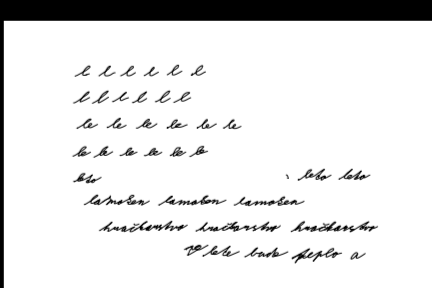 l l l l l l
l l l l l l
le le le le le le
le le le le le
leto leto leto
lamošen lamošen lamošen
hračkarstvo hračkarstvo hračkarstvo
V lete bude teplo a